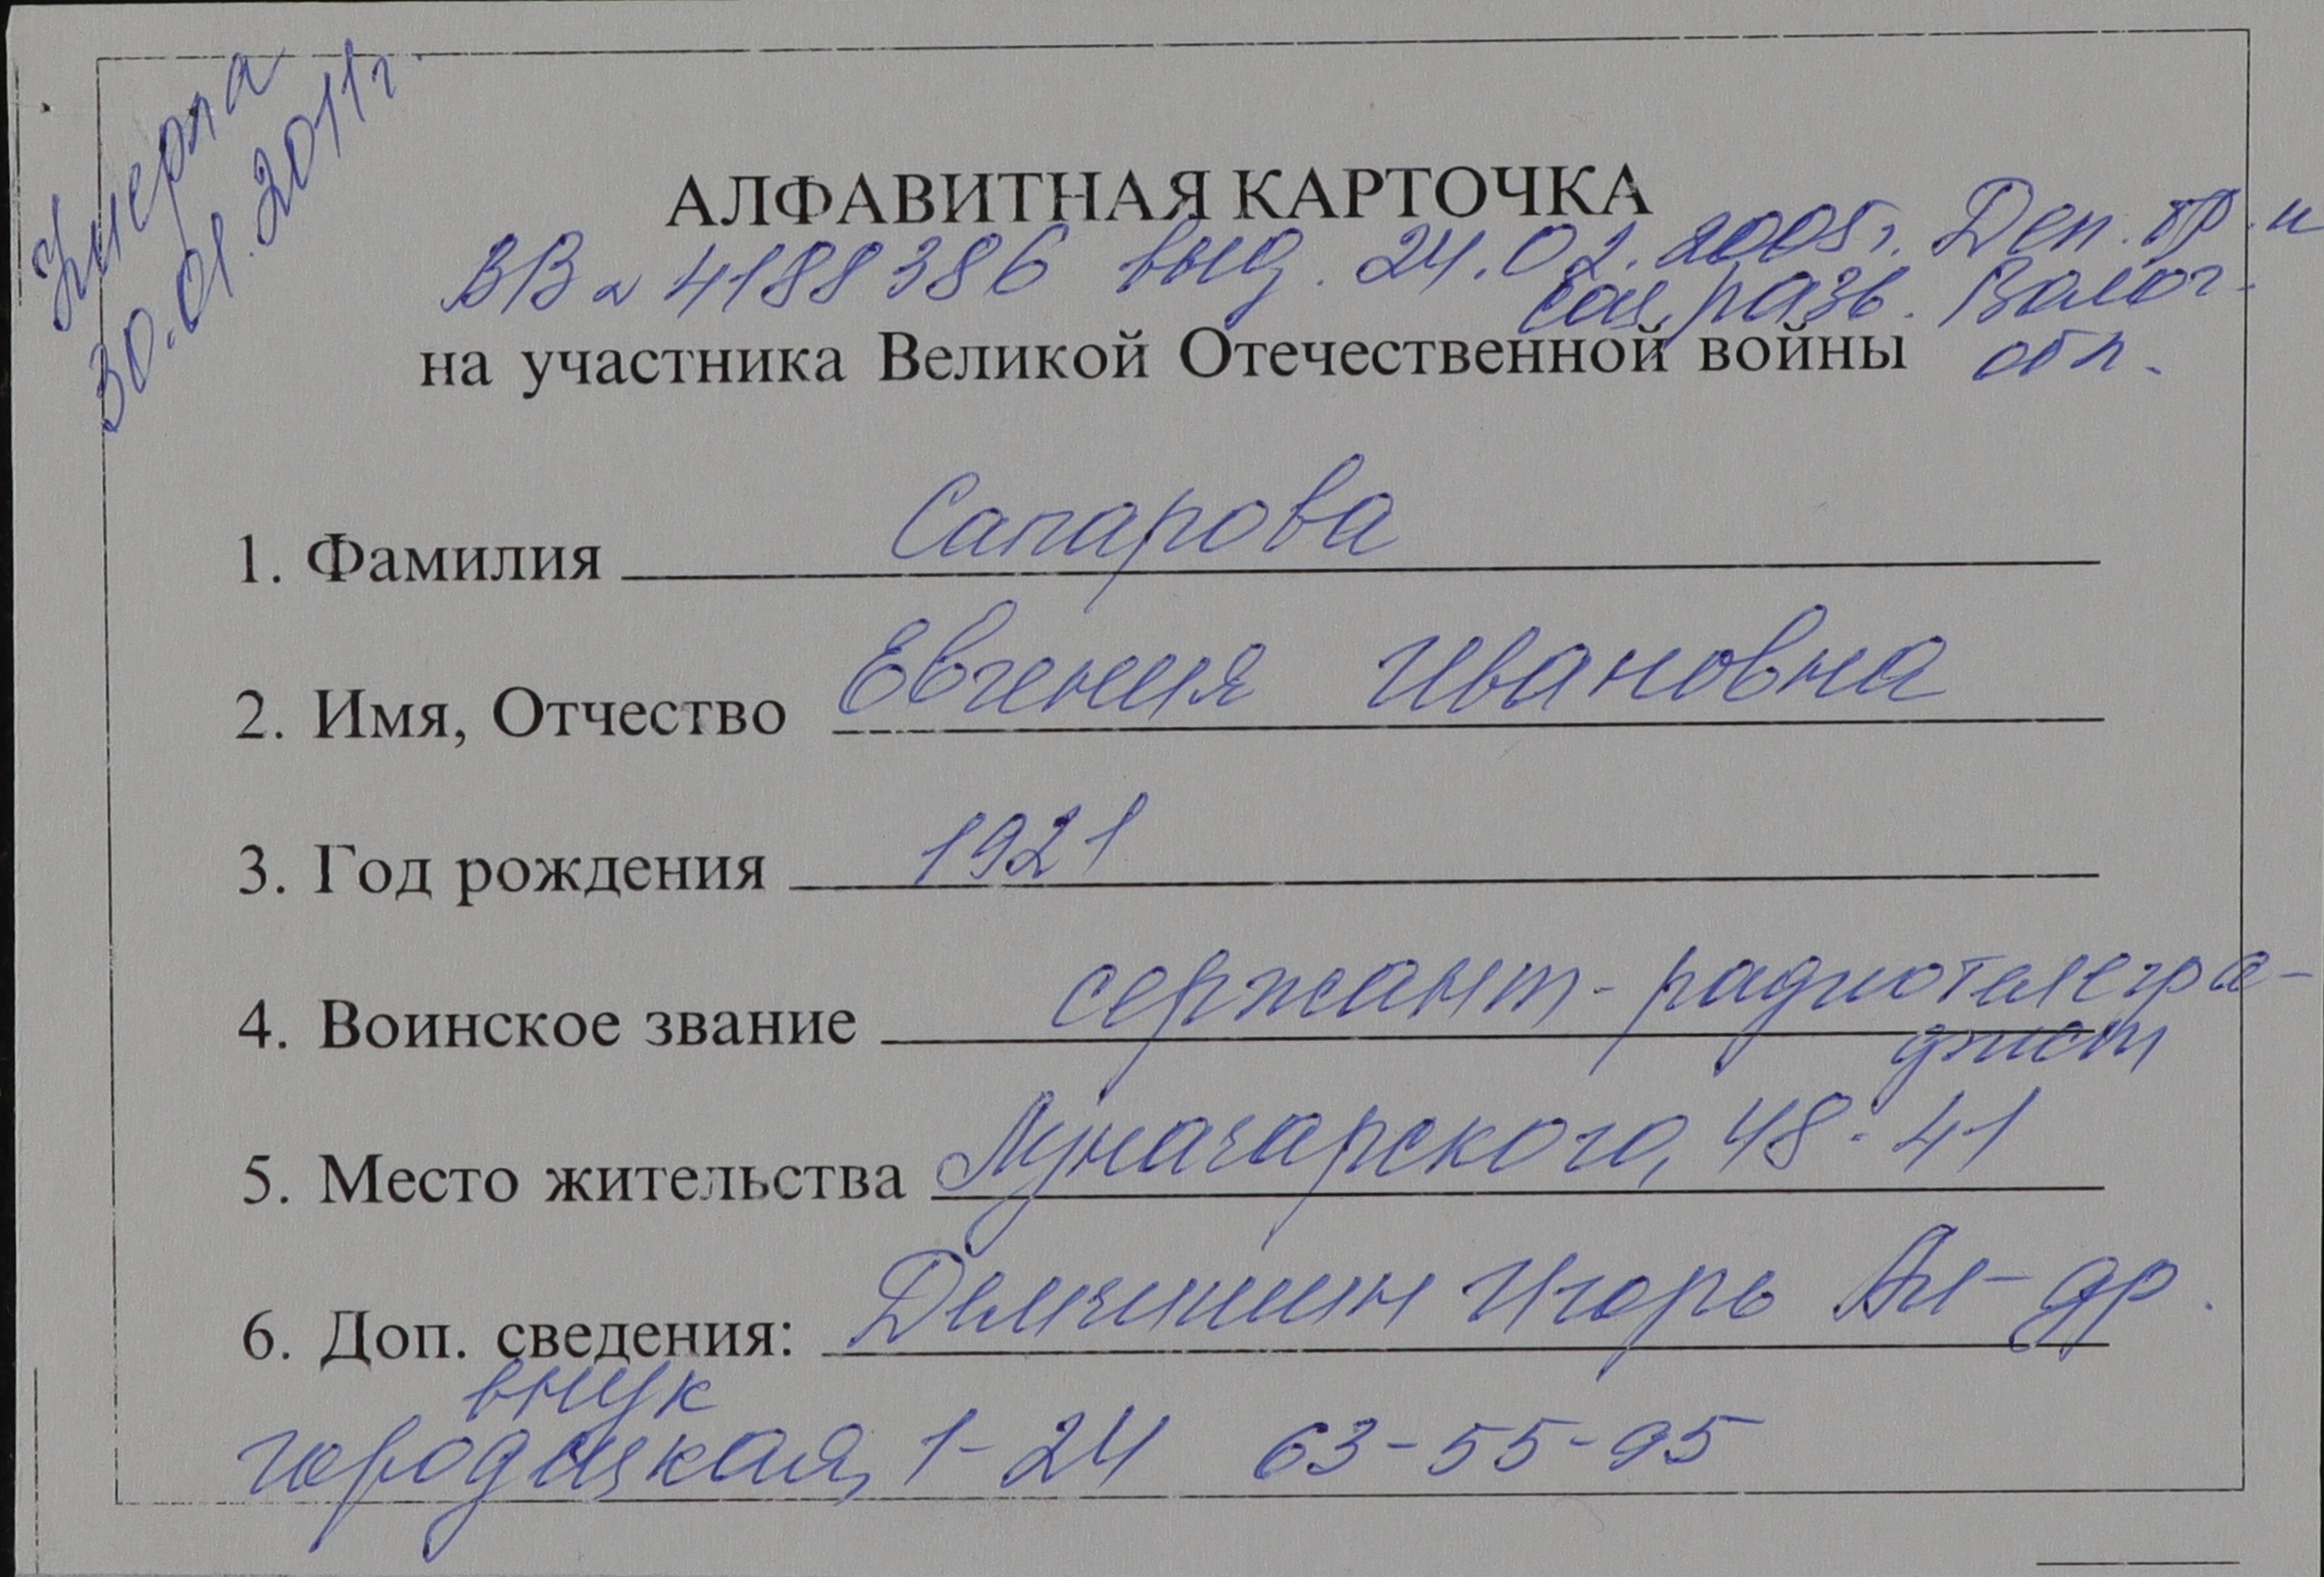 Умерла
30.01.2011г
АЛФАВИТНАЯ КАРТОЧКА
ВВ № 4188386 выд. 24.02.2005г. Деп. тр. и
соц. разв. Волог.
на участника Великой Отечественной войны обл.
1. Фамилия Сапарова
2. Имя, Отчество Евгения Ивановна
3. Год рождения 1921
4. Воинское звание сержант-радиотелегра-
фист
5. Место жительства Луначарского, 48-41
6. Доп. сведения: Игорь Ал-др.
внук
Городецкая, 1-24 63-55-95